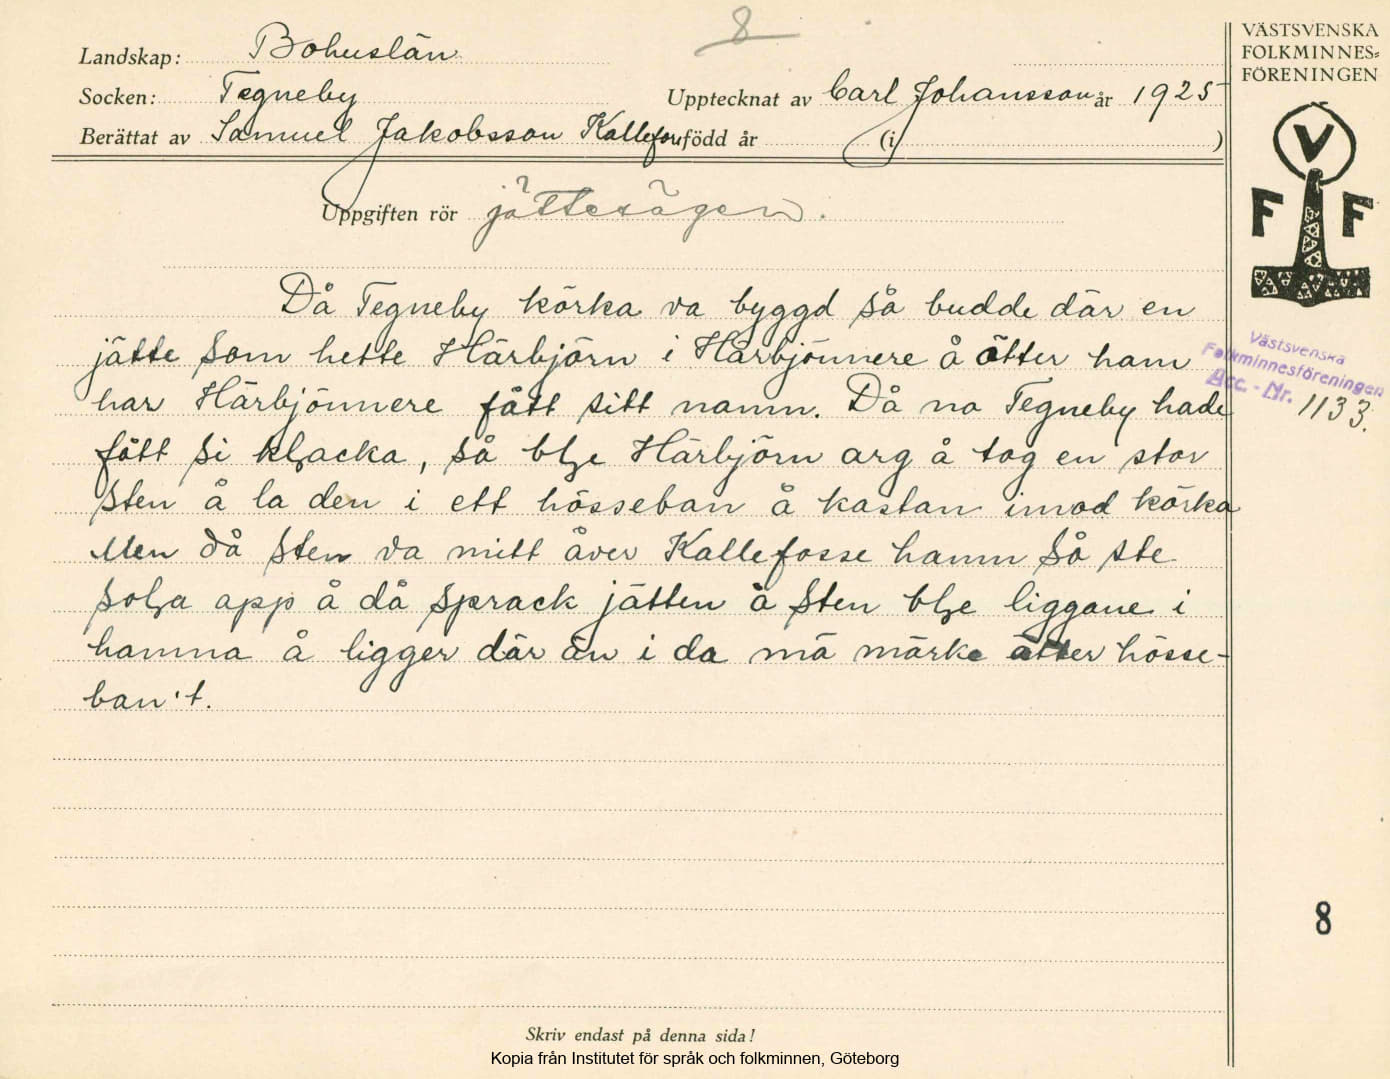 8
Landskap: Bohuslän
Socken: Tegneby
Upptecknat av Carl Johansson år 1925
Berättat av Samuel Jakobsson Kallefors född år (i )
Uppgiften rör jättesägen.
Då Tegneby körka va byggd så budde där en
jätte som hette Härbjörn i Härbjönnere å ätter ham
har Härbjönnere fått sitt namn. Då no Tegneby hade
fått si kljacka, så blje Härbjörn arg å tog en stor
sten å la den i ett hösseban å kastan imod körka
Men då sten va mitt åver Kallefosse hamn så ste
solja app å då sprack jätten å sten blje liggane i
hamna å ligger där än i da mä märke ätter hösse-
ban't.
Skriv endast på denna sida!
Kopia från Institutet för språk och folkminnen, Göteborg
VÄSTSVENSKA
FOLKMINNES-
FÖRENINGEN
V
F F
Västsvenska
Folkminnesföreningen
Acc.-Nr. 1133.
8